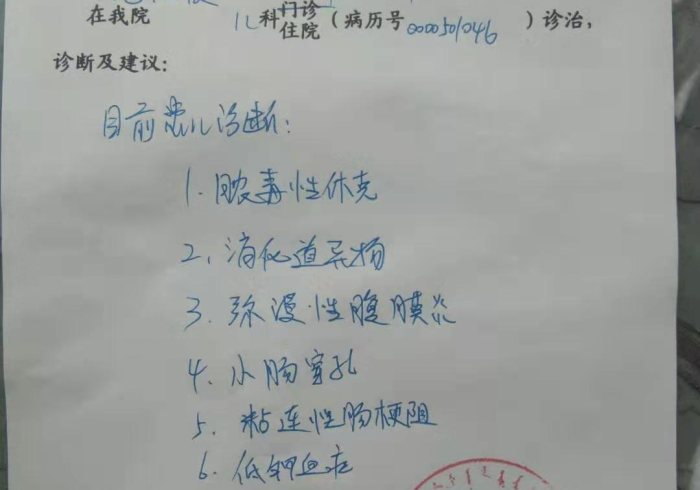 在我院 儿科门诊住院（病历号0000501046）诊治，
诊断及建议：
目前患儿诊断：
1. 脓毒性休克
2. 消化道异物
3. 弥漫性腹膜炎
4. 小肠穿孔
5. 粘连性肠梗阻
6. 低钾血症